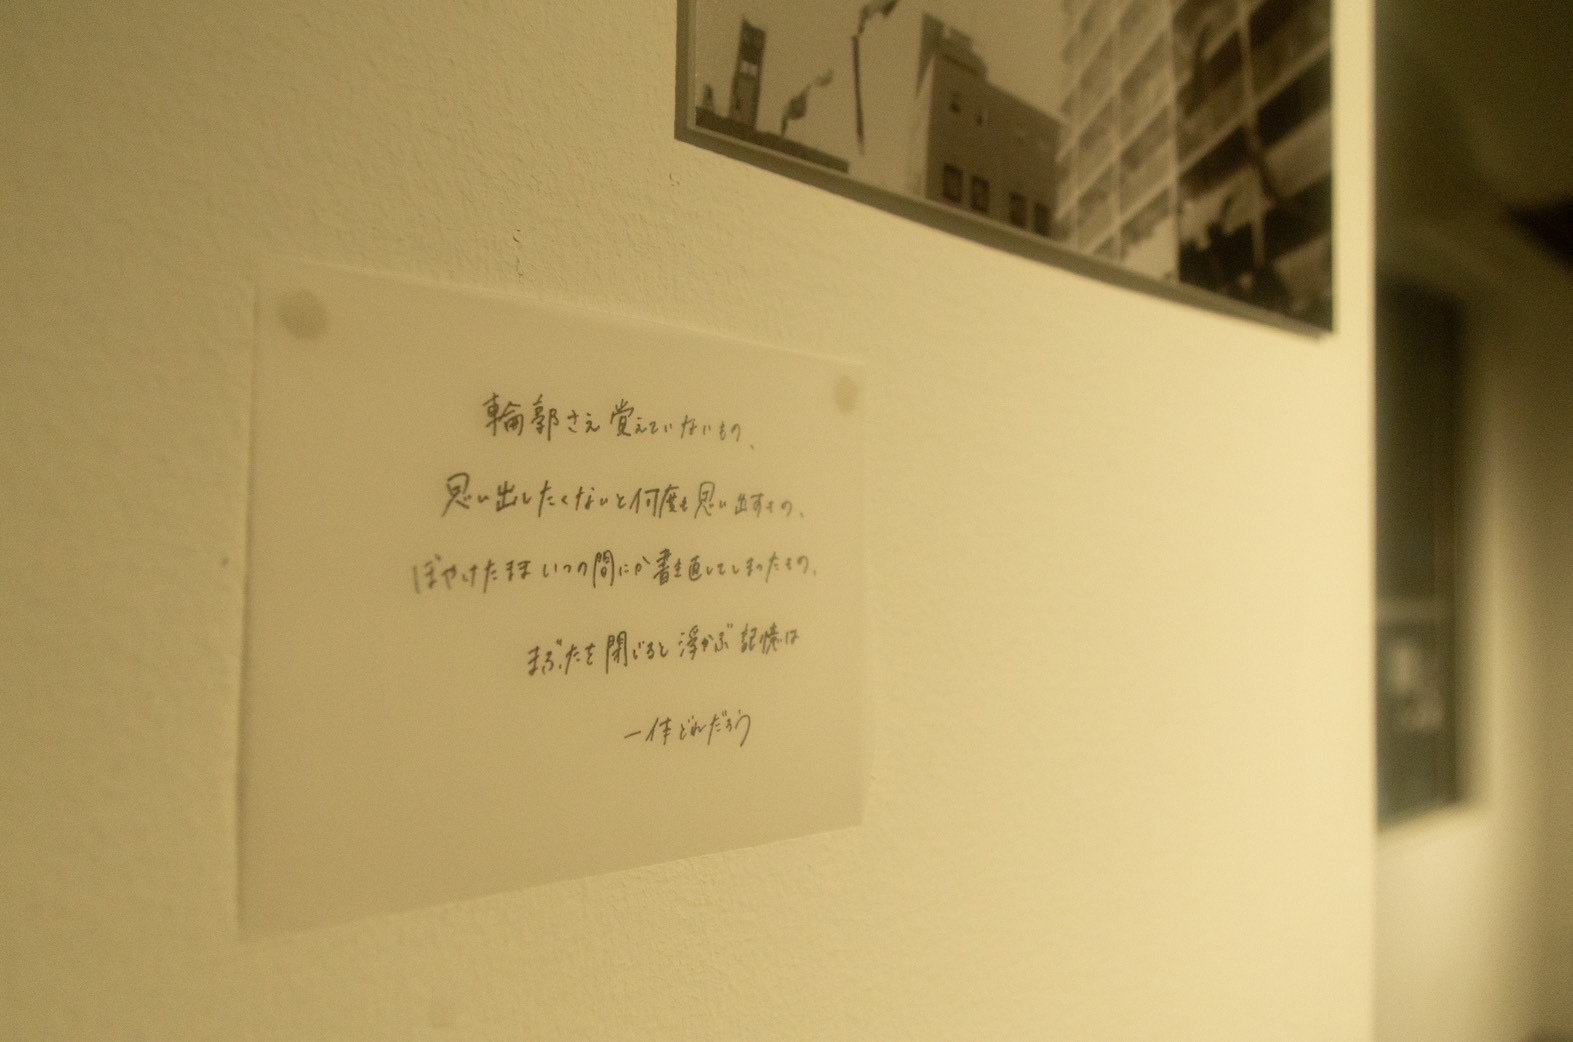 輪郭さえ覚えていないもの、
思い出したくないと何度も思い出すもの、
ぼやけたままいつの間にか書き直してしまったもの、
まぶたを閉じると浮かぶ記憶は
一体どれだろう